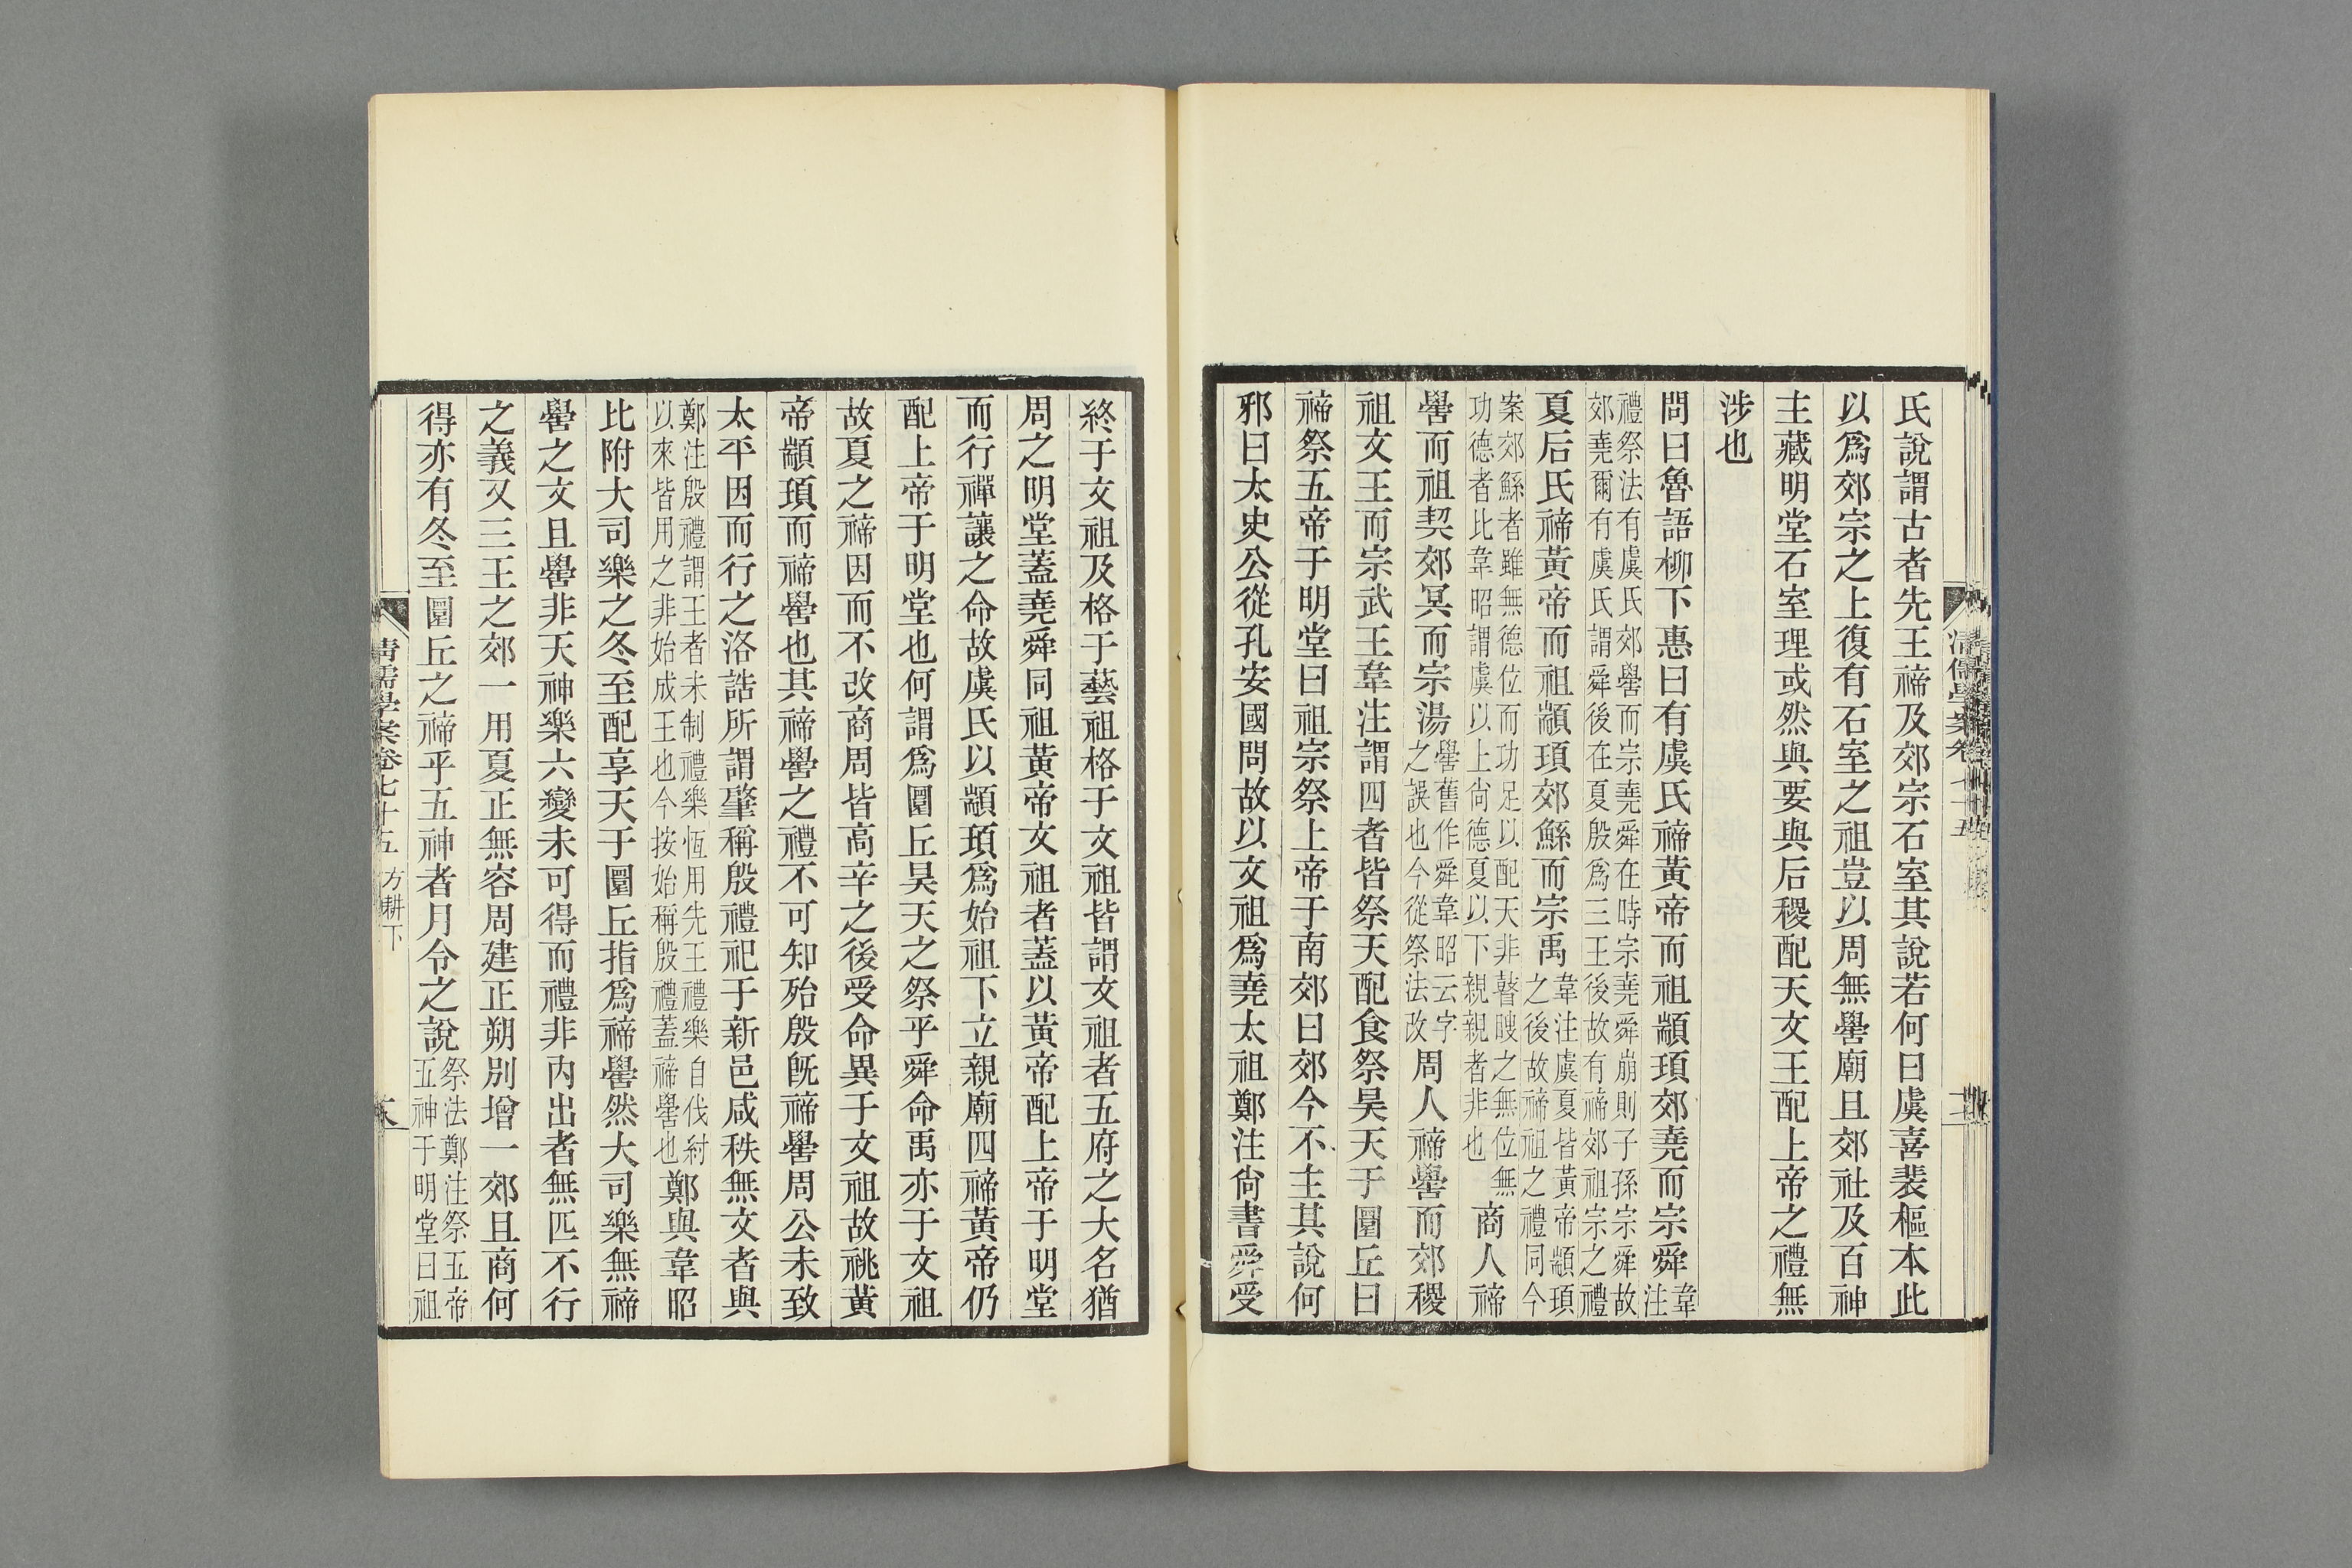 氏說謂古者先王禘及郊宗石室其說若何曰虞喜裴樞本此
以爲郊宗之上復有石室之祖豈以周無嚳廟且郊社及百神
主藏明堂石室理或然與要與后稷配天文王配上帝之禮無
涉也
問曰魯語柳下惠曰有虞氏禘黃帝而祖顓頊郊堯而宗舜韋注
禮祭法有虞氏郊嚳而宗堯舜在時宗堯舜崩則子孫宗舜故
郊堯爾有虞氏謂舜後在夏殷爲三王後故有禘郊祖宗之禮
夏后氏禘黃帝而祖顓頊郊鯀而宗禹韋注虞夏皆黃帝顓頊之後故禘祖之禮同今
案郊鯀者雖無德位而功足以配天非瞽瞍之無位無
功德者比韋昭謂虞以上尙德夏以下親親者非也
商人禘
嚳而祖契郊冥而宗湯嚳舊作舜韋昭云字之誤也今從祭法改周人禘嚳而郊稷
祖文王而宗武王韋注謂四者皆祭天配食祭昊天于圜丘曰
禘祭五帝于明堂曰祖宗祭上帝于南郊曰郊今不主其說何
邪曰太史公從孔安國問故以文祖爲堯太祖鄭注尙書舜受
終于文祖及格于藝祖格于文祖皆謂文祖者五府之大名猶
周之明堂蓋堯舜同祖黃帝文祖者蓋以黃帝配上帝于明堂
而行禪讓之命故虞氏以顓頊爲始祖下立親廟四禘黃帝仍
配上帝于明堂也何謂爲圜丘昊天之祭乎舜命禹亦于文祖
故夏之禘因而不改商周皆高辛之後受命異于文祖故祧黃
帝顓頊而禘嚳也其禘嚳之禮不可知殆殷旣禘嚳周公未致
太平因而行之洛誥所謂肇稱殷禮祀于新邑咸秩無文者與
鄭注殷禮謂王者未制禮樂恆用先王禮樂自伐紂
以來皆用之非始成王也今按始稱殷禮蓋禘嚳也
鄭與韋昭
比附大司樂之冬至配享天于圜丘指爲禘嚳然大司樂無禘
嚳之文且嚳非天神樂六變未可得而禮非內出者無匹不行
之義又三王之郊一用夏正無容周建正朔別增一郊且商何
得亦有冬至圜丘之禘乎五神者月令之說祭法鄭注祭五帝五神于明堂曰祖
清儒學案卷七十五 方耕下